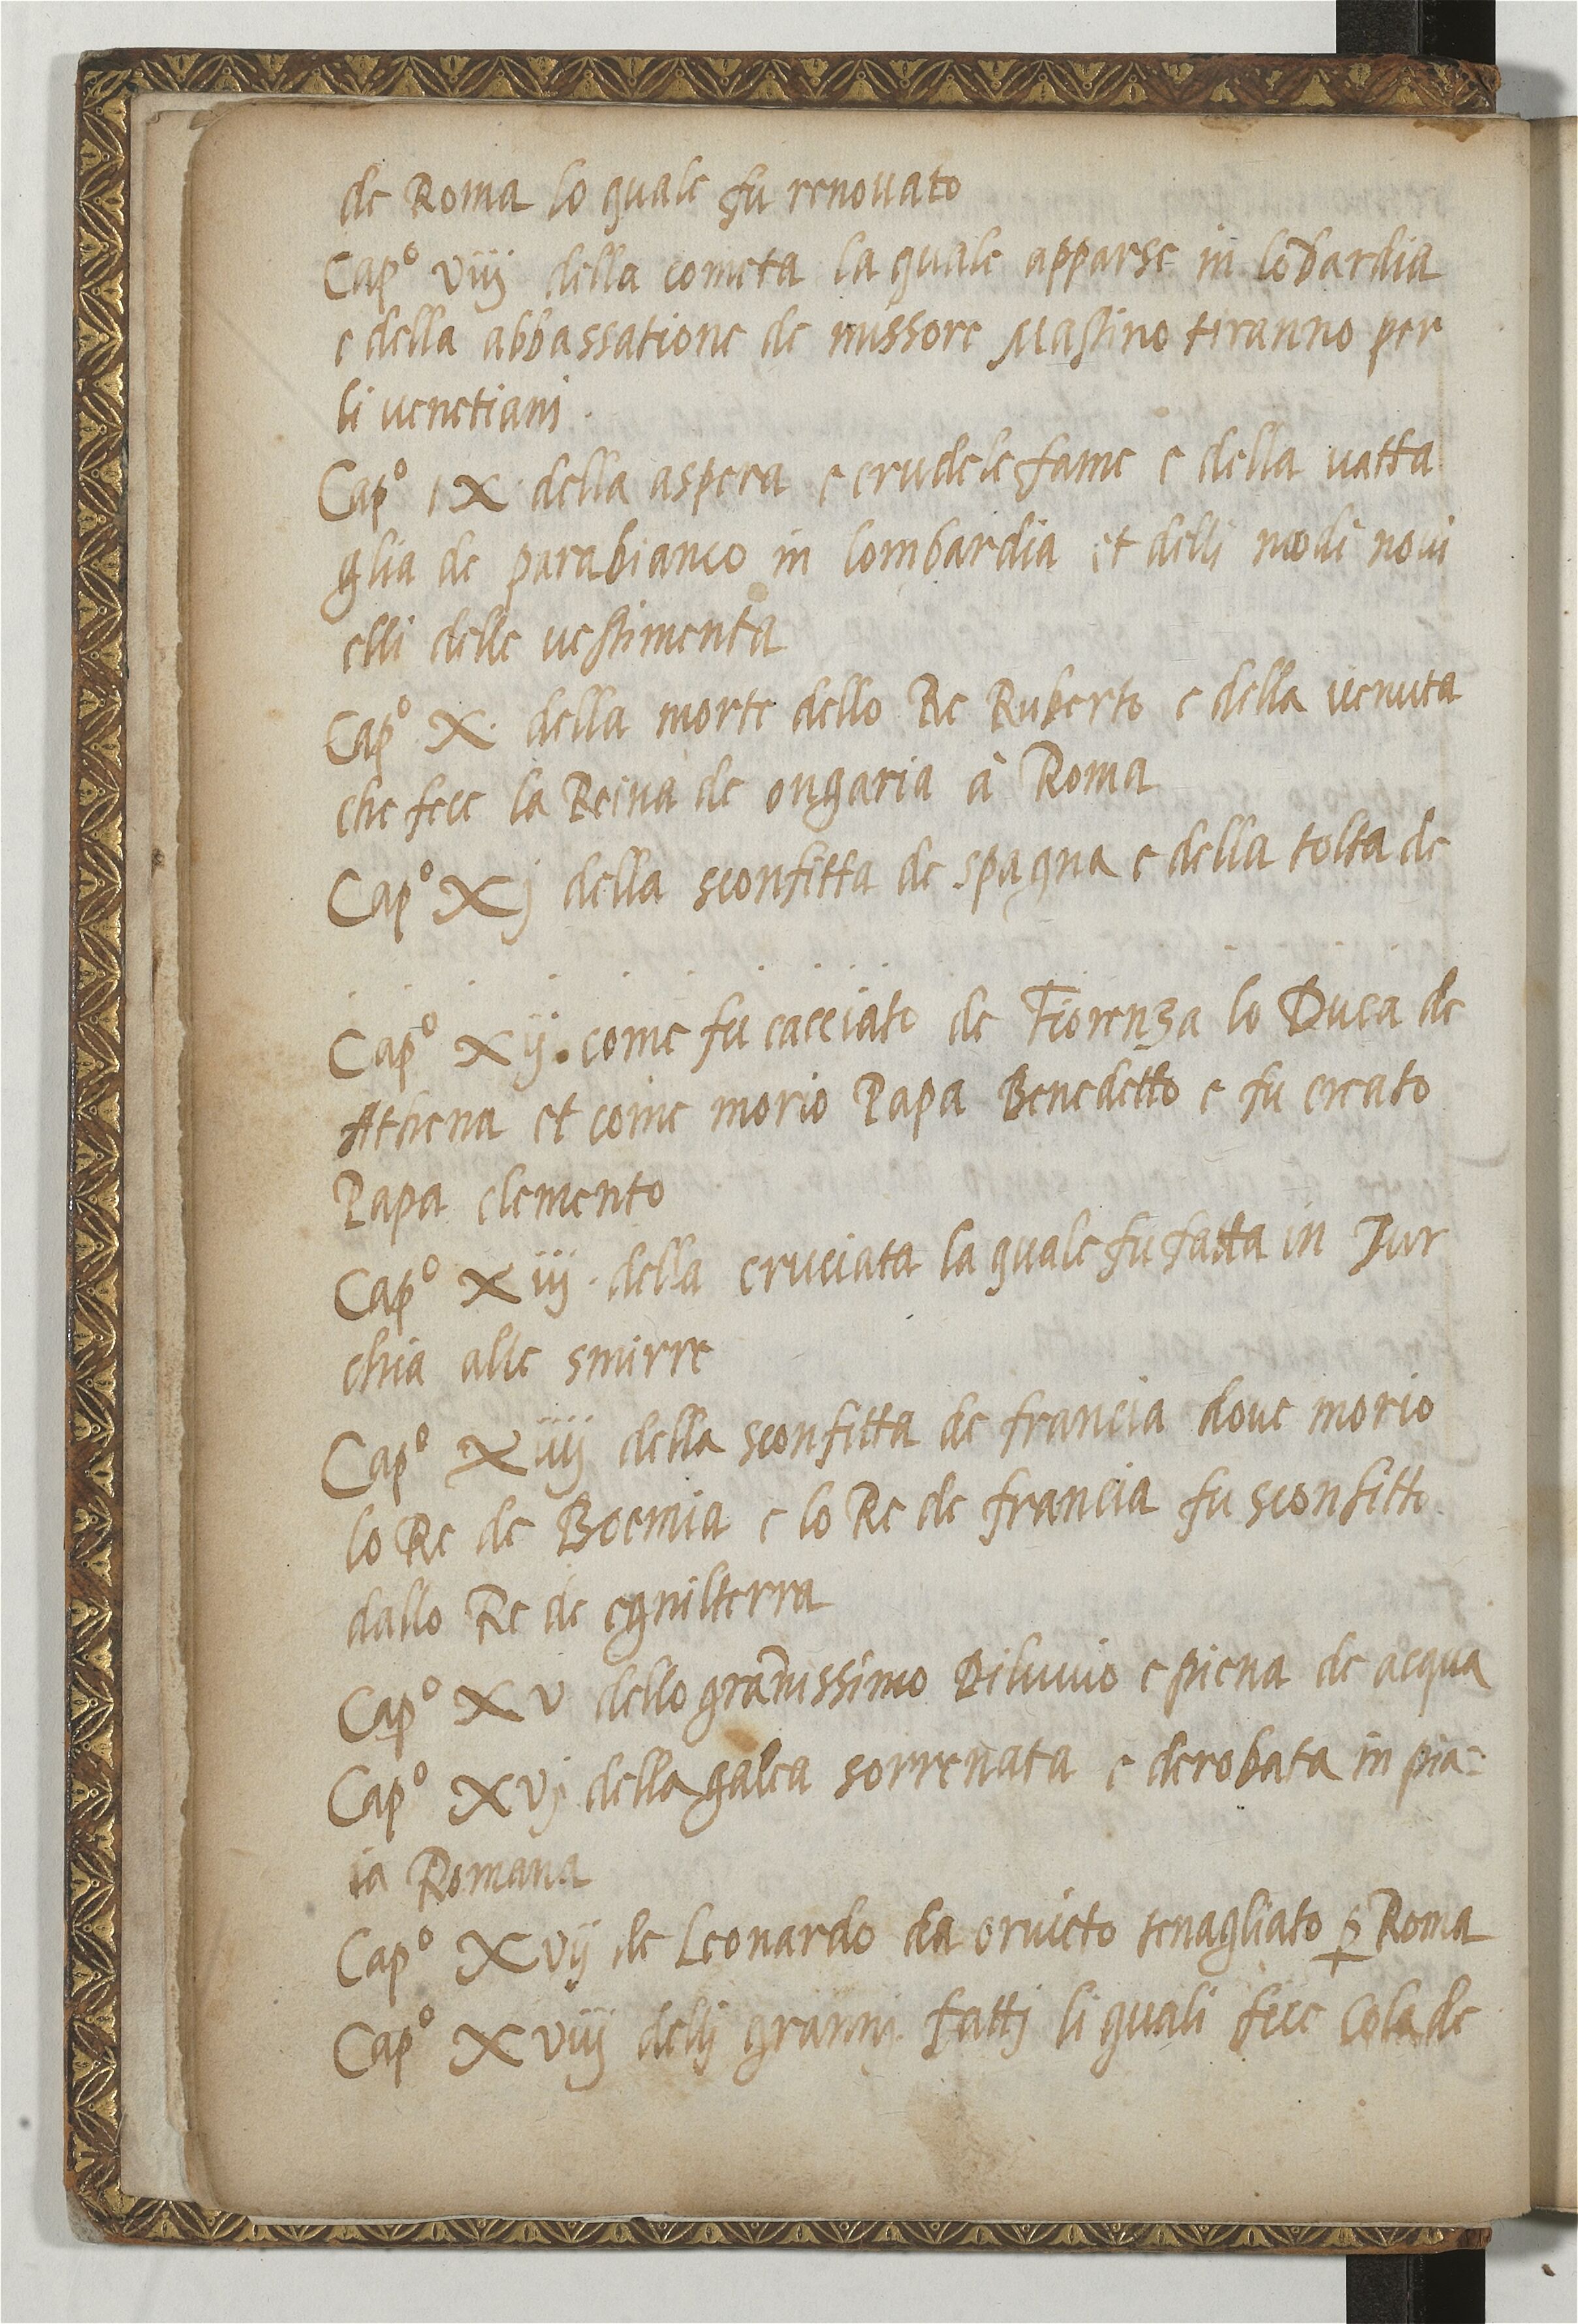 de Roma lo quale fu renouato
Cap° viij della cometa la quale apparse in lōbardia
e della abbassatione de missore Mastino tiranno per
li venetiani
Cap° IX della aspera e crudele fame e della vatta
glia de parabianco in lombardia et delli modi novi
elli delle vestimenta
Cap° X. della morte dello Re Ruberto e della venuta
che fece la Reina de ongaria à Roma
Cap° Xj della sconfitta de spagna e della tolta de
Cap° Xij. come fu cacciato de Fiorenza lo Duca de
Athena et come morio Papa Benedetto e fu creato
Papa clemento
Cap° Xiij. della cruciata la quale fu fatta in Tur
chia alle smirre
Cap° Xiiij della sconfitta de francia doue morio
lo Re de Boemia e lo Re de francia fu sconfitto
dallo Re de egnilterra
Cap° XV dello grānissimo Diluuio e piena de acqua
Cap° XVj della galea sorrenata e derobata in pia=
ia Romana
Cap° XVij de Leonardo da orvieto tenagliato ꝑ Roma
Cap° XViij dellj granni fattj li quali fece Cola de